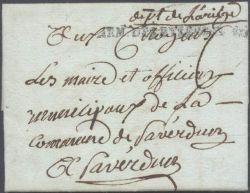 dept de Lariege
ARM. D
Aux Citoyens
Les maire et officiers
municipaux de La
commune de Saverdun
A Saverdun